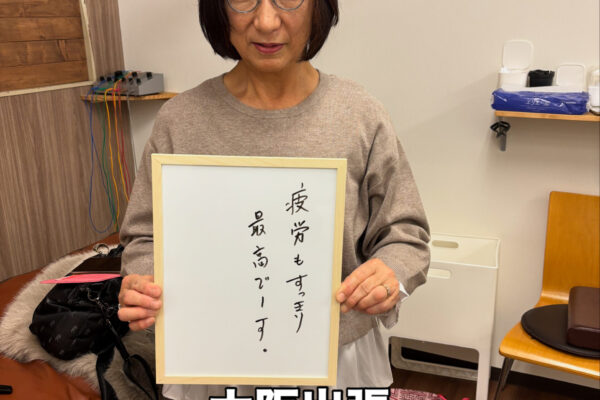 疲労もすっきり
最高でーす.
大阪出張